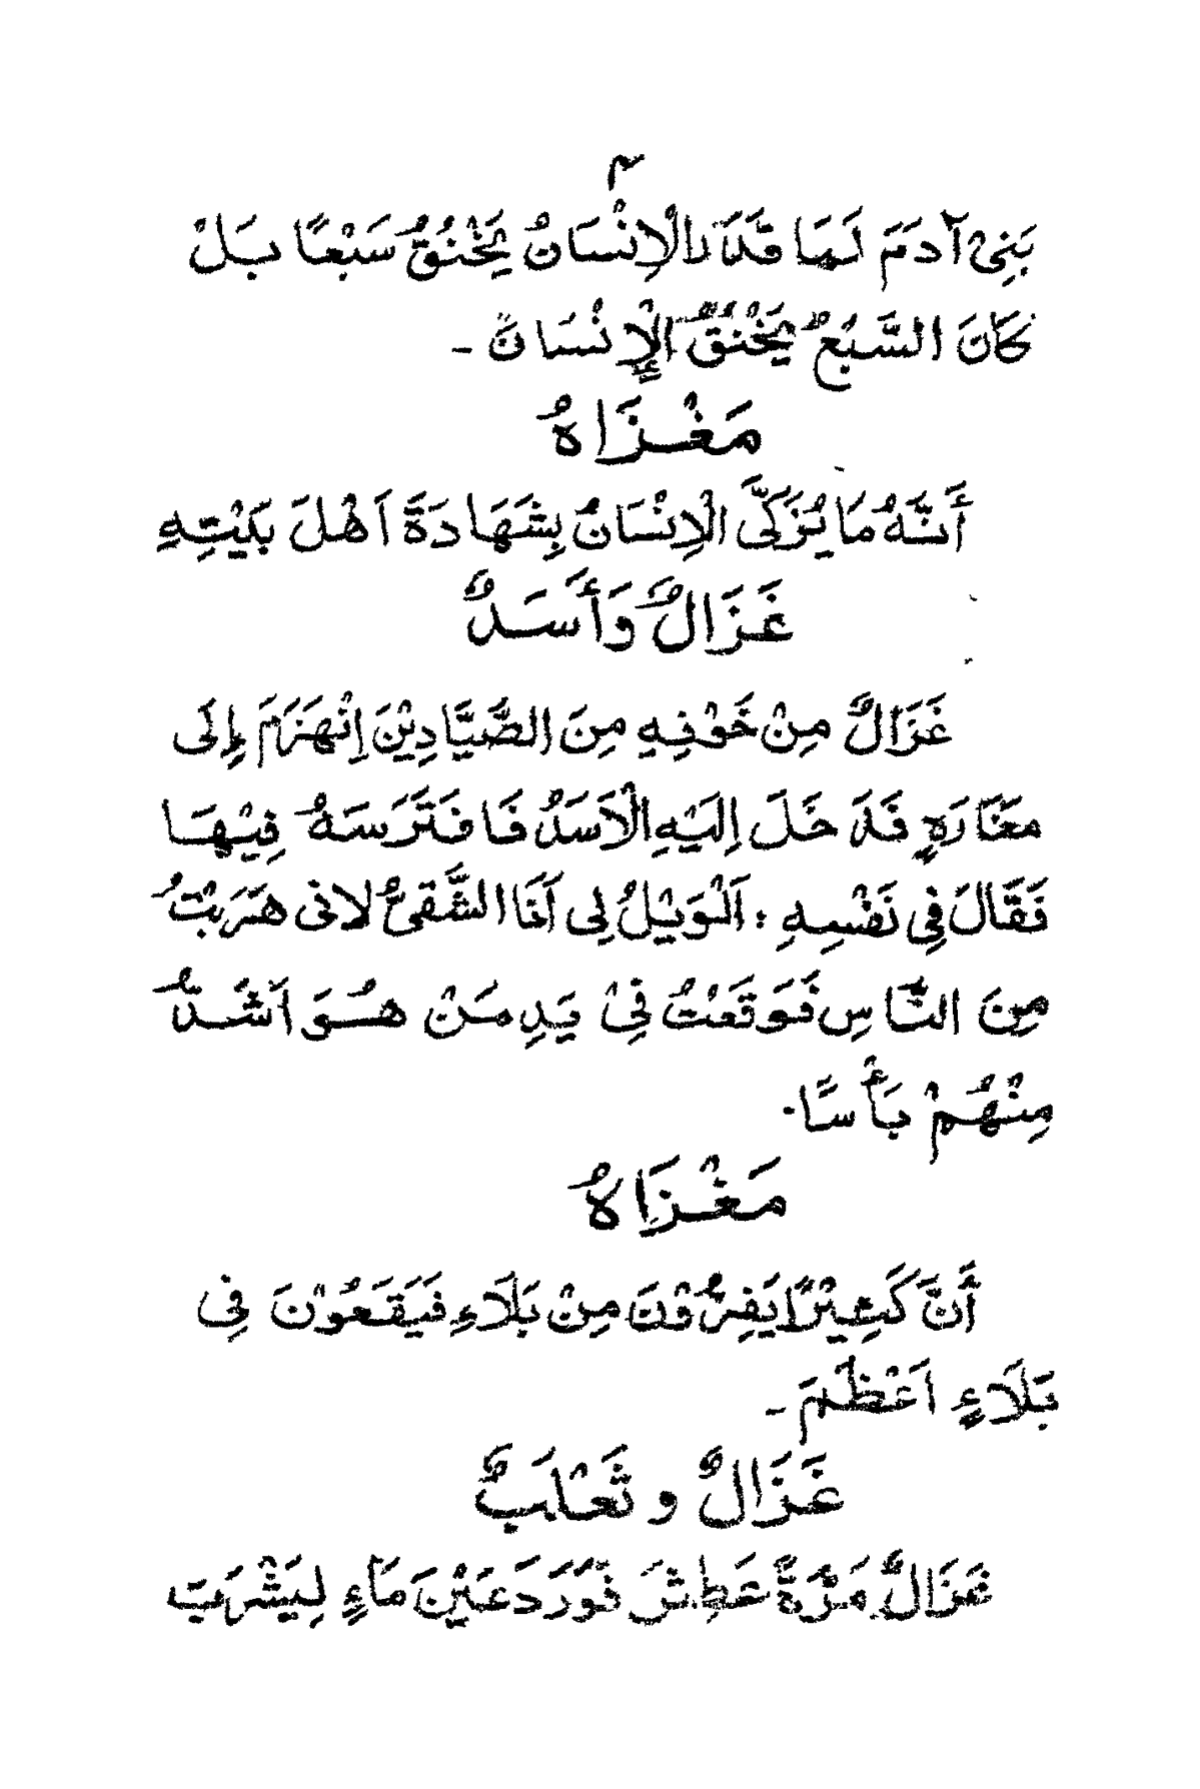 ٣
بَنِيْ آدَمَ لَمَا قَدَرَ الْإِنْسَانُ يَخْنُقُ سَبْعًا بَلْ
كَانَ السَّبُعُ يَخْنُقُ الْإِنْسَانَ -
مَغْزَاهُ
أَنَّهُ مَا يُزَكَّى الْاِنْسَانُ بِشَهَادَةَ اَهْلَ بَيْتِهِ
غَزَالٌ وَأَسَدٌ
غَزَالٌ مِنْ خَوْفِهِ مِنَ الصَّيَّادِيْنَ اِنْهَزَمَ إِلَى
مَغَارَةٍ فَدَخَلَ اِلَيْهِ الْاَسَدُ فَافْتَرَسَهُ فِيْهَا
فَقَالَ فِي نَفْسِهِ : اَلْوَيْلُ لِي اَنَا الشَّقِيُّ لانى هَرَبْتُ
مِنَ النَّاسِ فَوَقَعْتُ فِيْ يَدِ مَنْ هُوَ اَشَدُّ
مِنْهُمْ بَأْسًا.
مَغْزَاهُ
أَنَّ كَثِيْرًا يَفِرُّوْنَ مِنْ بَلَاءِ فَيَقَعُوْنَ فِي
بَلَاءٍ اَعْظَمَ -
غَزَالٌ و ثَعْلَبٌ
غَزَالٌ مَرَّةً عَطِشَ فَوَرَدَ عَيْنَ مَاءٍ لِيَشْرَبَ